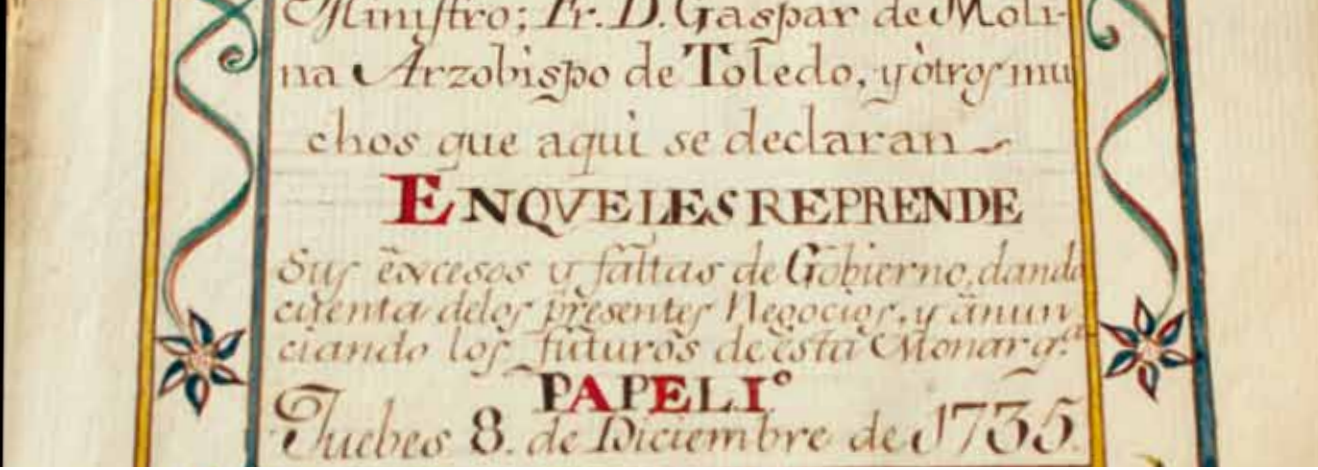 Ministro; Fr. D. Gaspar de Moli-
na Arzobispo de Toledo, y òtros mu
chos que aqui se declaran
EN QVE LES REPRENDE
Sus excesos y faltas de Gobierno, dando
cuenta delos presentes Negocios, y anun
ciando los futuros de esta Monarq.ª
PAPEL 1º
Juebes 8. de Diciembre de 1735.